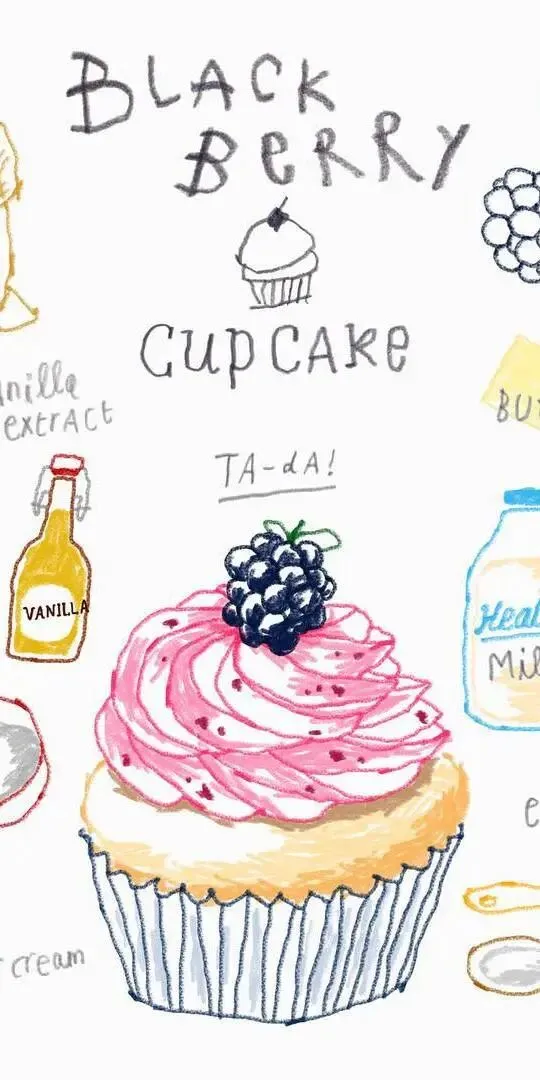 BLACK
BERRY
CUPCAKE
anilla
extract
BUT
TA-dA!
VANILLA
Heal
Mil
e
r cream